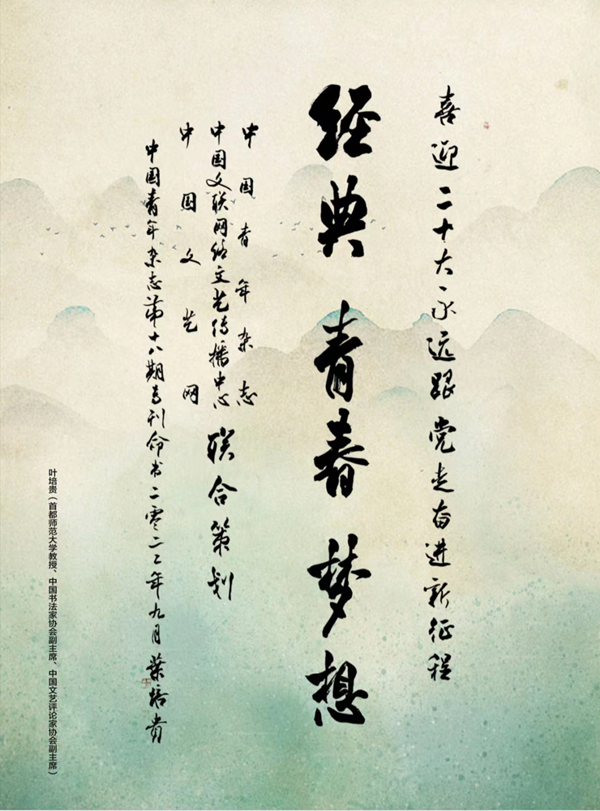 喜迎二十大永远跟党走奋进新征程
经典青春梦想
中国青年杂志
中国文联网络文艺传播中心
中国文艺网
联合策划
中国青年杂志第十八期专刊命书二零二二年九月叶培贵
叶培贵（首都师范大学教授、中国书法家协会副主席、中国文艺评论家协会副主席）